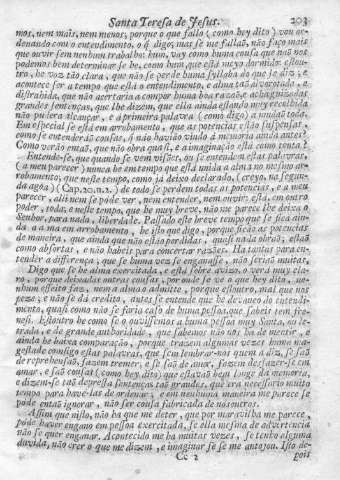 Santa Teresa de Jesus. 203
mos, nem mais, nem menos, porque o que fallo (como hey dito) vou or-
denando com o entendimento, o q̃ digo; mas se me fallaõ, não faço mais
que ouvir sem nenhum trabalho: huma, vay como huma cousa que naõ nos
podemos bem determinar se he, como hum, que está meyo dormido: estou-
tro, he voz tão clara, que não se perde huma syllaba do que se diz, e
acontece ser a tempo que está o entendimento, e alma taõ alvoroçada, e
distrahida, que não acertaria a compor huma boa razaõ, e acha guizadas
grandes sentenças, que lhe dizem, que ella ainda estando muy recolhida
não pudera alcançar, e á primeira palavra (como digo) a mudaõ toda.
Em especial se está em arrobamento, que as potencias estão suspensas,
como se entenderáõ cousas, q̃ não haviaõ vindo á memoria ainda antes?
Como verão entaõ, que não obra quasi, e a imaginação está como tonta?
Entenda-se, que quando se vem visões, ou se entendem estas palavras,
(a meu parecer) nunca he em tempo que está unida a alma no mesmo ar-
robamento, que neste tempo, como já deixo declarado, (creyo, na segun-
da agoa) (Cap. 20. n. 2.) de todo se perdem todas as potencias, e a meu
parecer, alli nem se póde ver, nem entender, nem ouvir: está, em outro
poder, toda, e neste tempo, que he muy breve, não me parece lhe deixa o
Senhor, para nada, liberdade. Passado este breve tempo que se fica ain-
da a alma em arrobamento, he isto que digo, porque ficaõ as potencias
de maneira, que ainda que não estão perdidas, quasi nada obraõ; estaõ
como absortas, e não habeis para concertar razões. Ha tantas para en-
tender a differença, que se huma vez se enganasse, não seriaõ muitas.
Digo que se he alma exercitada, e está sobre aviso, o verá muy cla-
ro, porque deixadas outras cousas, por onde se vê o que hey dito, ne-
nhum effeito faz, nem a alma o admitte, porque estoutro, mal que nos
peze; e não se dá credito, antes se entende que he devaneo do entendi-
mento, quasi como não se faria caso de huma pessoa, que sabeis tem fre-
nesi. Estoutro he como se o ouvissemos a huma pessoa muy Santa, ou le-
trada e de grande authoridade, que sabemos não nos ha de mentir, e
ainda he baixa comparação, porque trazem algumas vezes huma ma-
gestade consigo estas palavras, que sem lembrar-nos quem a diz, se saõ
de reprehensaõ, fazem tremer; e se saõ de amor, fazem desfazer-se em
amar, e saõ cousas (como hey dito) que estavaõ bem longe da memoria,
e dizem-se taõ depressa sentenças taõ grandes, que era necessario muito
tempo para havê-las de ordenar; e em nenhuma maneira me parece se
póde entaõ ignorar, não ser cousa fabricada de nosoutros.
Assim que nisto, não ha que me deter, que por maravilha me parece,
póde haver engano em pessoa exercitada, se ella mesma de advertencia
não se quer enganar. Acontecido me ha muitas vezes, se tenho alguma
duvida, não crer o que me dizem, e imaginar se se me antojou. Isto de-
Cc 2 pois